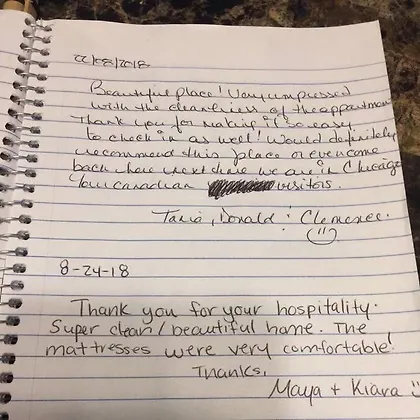 22/08/2018
Beautiful place! Very impressed
with the cleanliness of the appartment
Thank you for making it so easy
to check in as well! Would definitely
recommend this place or even come
back here next time we are in Chicago
Your canadian visitors.
Tania, Donald & Clemence.
8-24-18
Thank you for your hospitality.
Super clean/beautiful home. The
mattresses were very comfortable!
Thanks,
Maya + Kiara